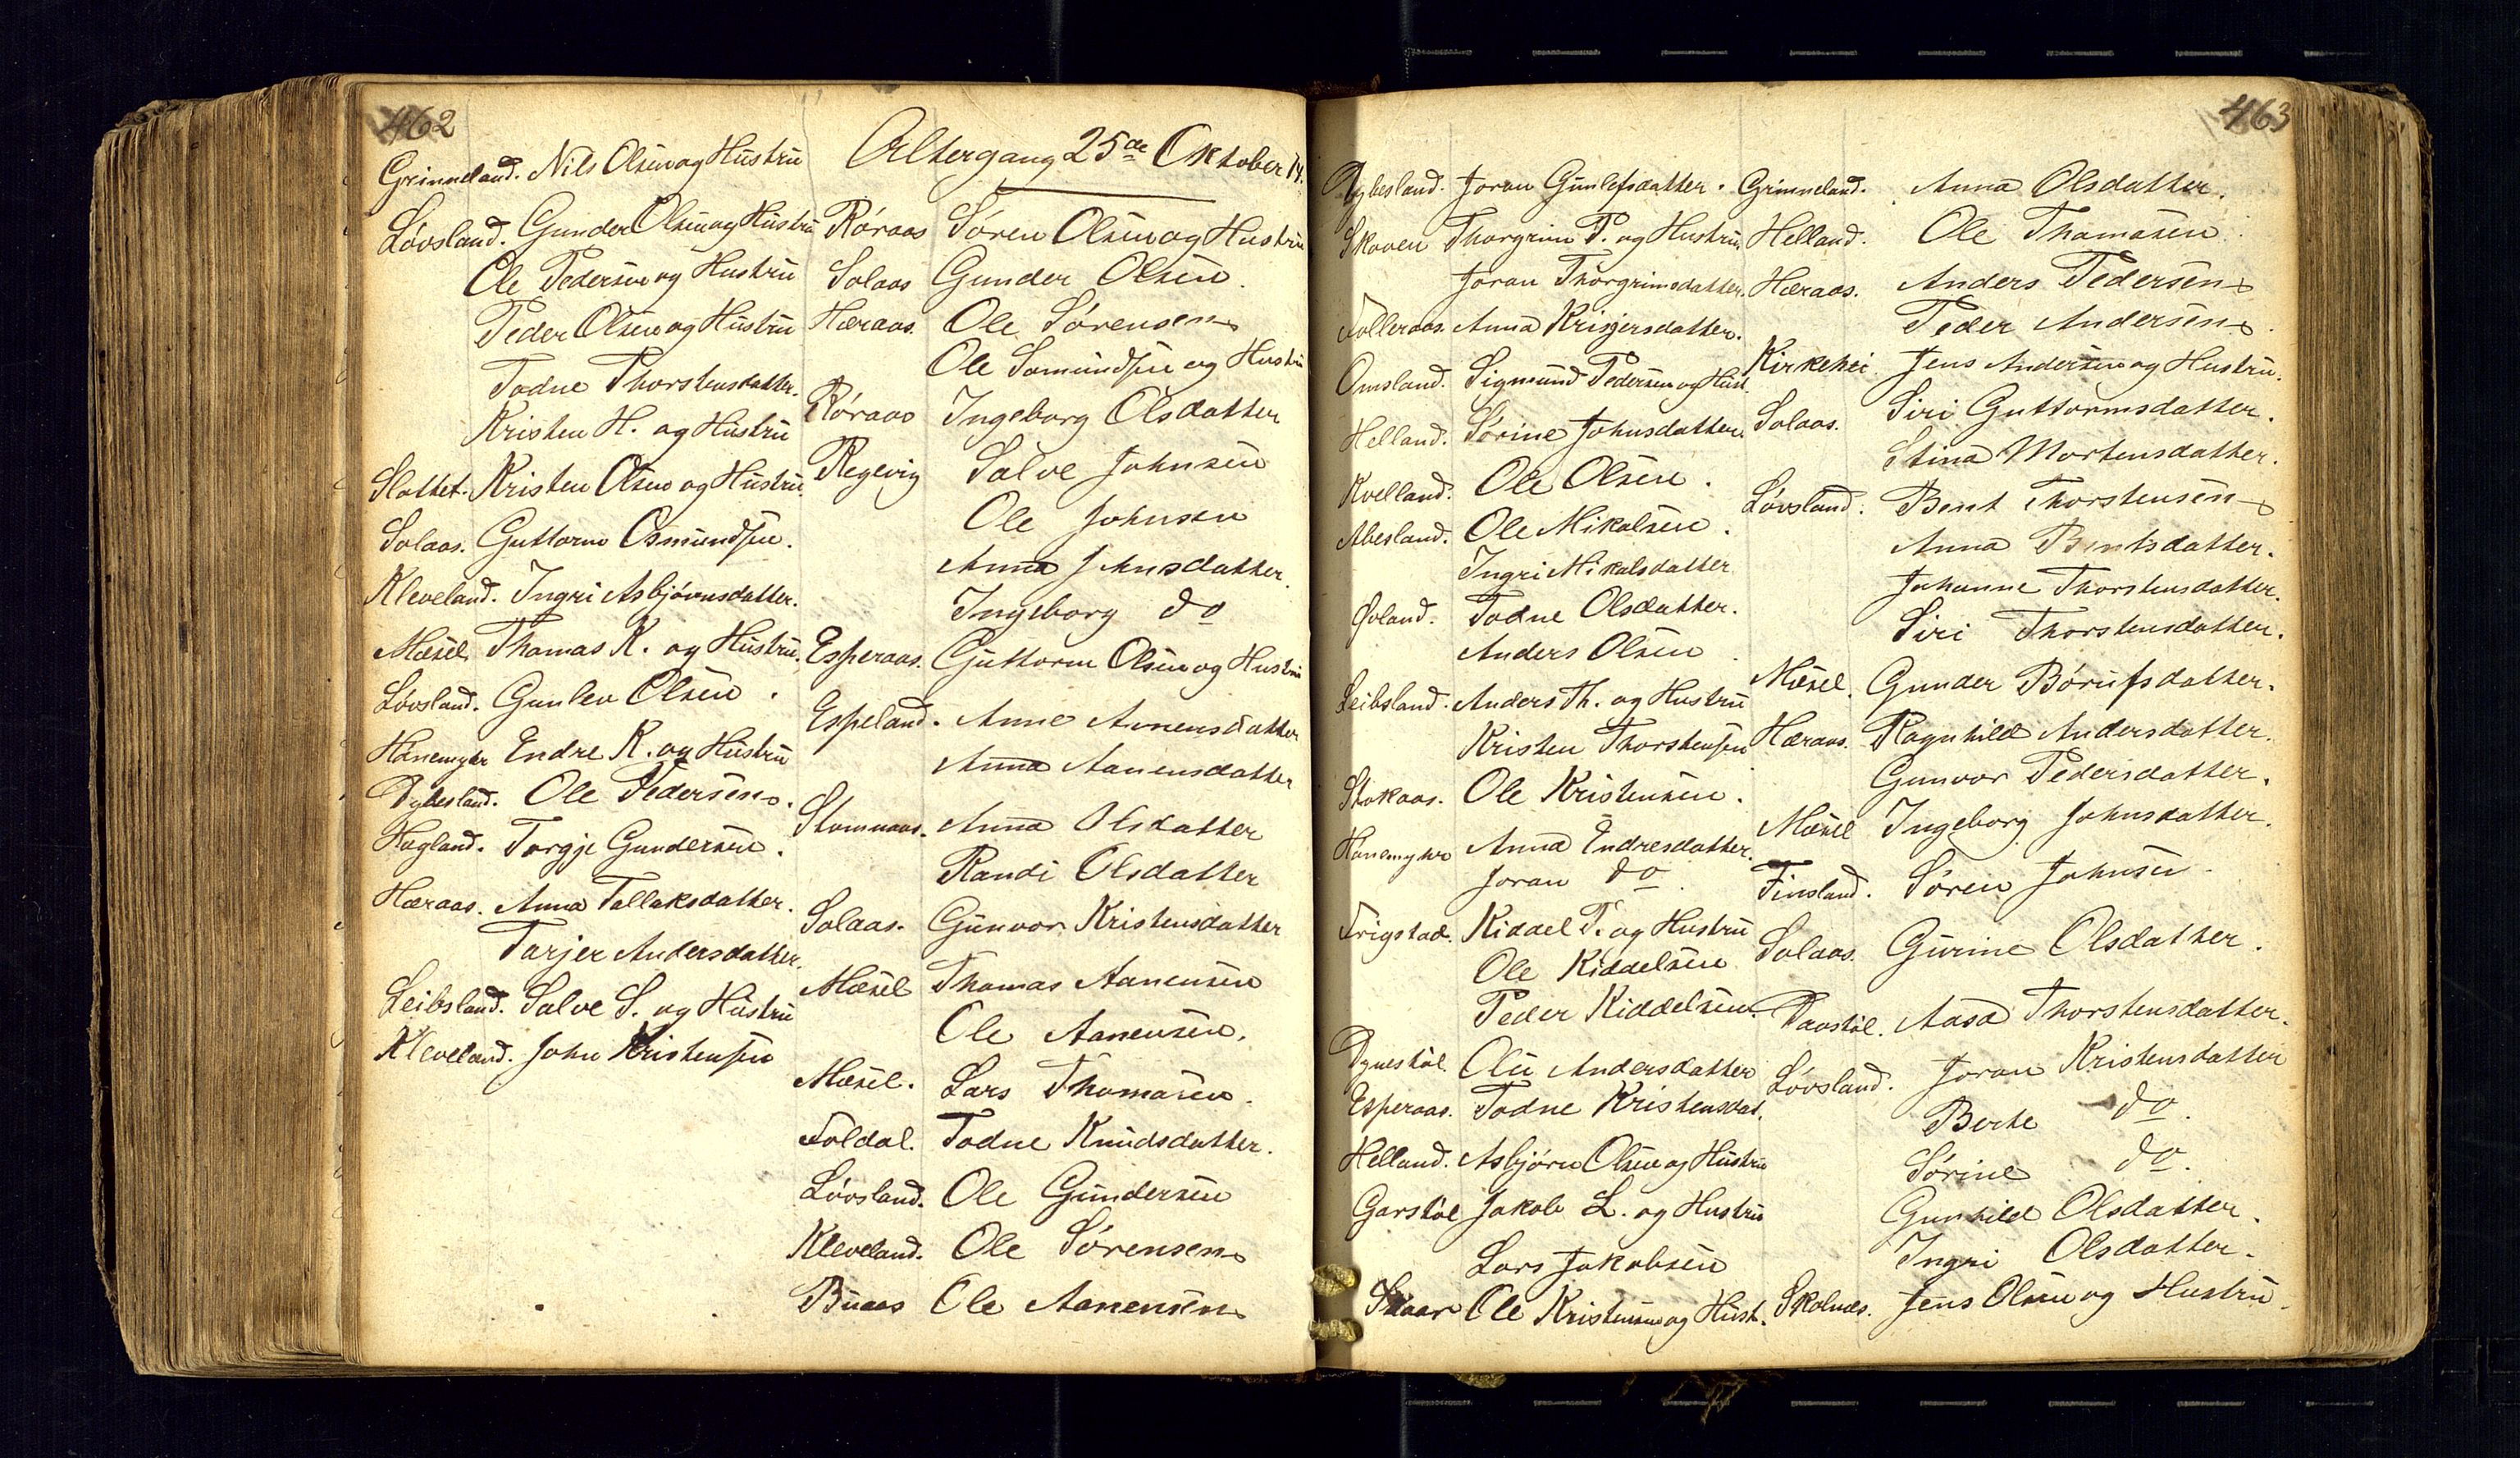 462
Grinneland. Nils Olsen og Hustru
Løvsland. Gunder Olsen og Hustru
Ole Pedersen og Hustru
Peder Olsen og Hustru
Todne Thorstensdatter.
Kristen H. og Hustru
Slottet. Kristen Olsen og Hustru
Solaas. Guttorm Osmundsen.
Kleveland. Ingri Asbjörnsdatter.
Mæsel Thomas K. og Hustru.
Løvsland. Gunlev Olsen.
Hönemyhr Endre K. og Hustru
Dybesland. Ole Pedersen.
Hægland. Torgje Gundersen.
Hæraas. Anna Tallaksdatter.
Tarjer Andersdatter.
Leibsland. Salve S. og Hustru
Kleveland. John Kristensen
Altergang 25de Oktober 74.
Röraas Søren Olsen og Hustru
Solaas Gunder Olsen.
Hæraas. Ole Sørensen
Ole Somundsen og Hustru
Röraas Ingeborg Olsdatter
Regevig Salve Johnsen
Ole Johnsen
Anna Johnsdatter.
Ingeborg do
Esperaas. Guttorm Olsen og Hustru
Espeland. Anne Aanensdatter
Anna Aanensdatter
Stommaas. Anna Olsdatter
Randi Olsdatter
Solaas. Gunvor Kristensdatter
Mæsel Thomas Aanensen
Ole Aanensen.
Mæsel. Lars Thomasen.
Foldal. Todne Knudsdatter.
Løvsland. Ole Gundersen
Kleveland. Ole Sørensen
Buaas Ole Aanensen
463
Dybesland. Joran Gunlefsdatter.
Skoven Thorgrim P. og Hustru
Joran Thorgrimsdatter.
Folleraas. Anna Krisjersdatter.
Omsland. Sigmund Pedersen og Hust.
Helland. Sørine Johnsdatter.
Kvelland. Ole Olsen.
Abesland. Ole Mikalsen.
Ingri Mikalsdatter
Todne Olsdatter.
Anders Olsen.
Leibsland. Anders Th. og Hustru
Kristen Thorstensen
Stokaas. Ole Kristensen.
Hönemyhr Anna Endresdatter.
Joran do.
Frigstad. Kiddel T. og Hustru
Ole Kiddelsen
Peder Kiddelsen.
Dynestøl. Oli Andersdatter
Esperaas. Todne Kristensdat.
Helland. Asbjörn Olsen og Hustru
Garstøl Jakob L. og Hustru
Lars Jakobsen
Skaar Ole Kristensen og Hust.
Grinneland. Anna Olsdatter.
Helland. Ole Thomasen.
Hæraas. Anders Pedersen
Peder Andersen.
Kirkehei Jens Andersen og Hustru.
Solaas. Siri Guttormsdatter.
Stina Mortensdatter.
Løvsland. Bent Thorstensen
Anna Bentsdatter.
Johanne Thorstensdatter.
Siri Thorstensdatter.
Mæsel. Gunder Börufsdatter.
Hæraas. Ragnhild Andersdatter.
Gunvor Pedersdatter.
Mæsel Ingeborg Johnsdatter.
Finsland. Søren Johnsen.
Solaas. Gurine Olsdatter.
Aasa Thorstensdatter.
Løvsland. Joran Kristensdatter
Berte do.
Sørine do.
Gunhild Olsdatter.
Ingri Olsdatter.
Skolnes. Jens Olsen og Hustru.